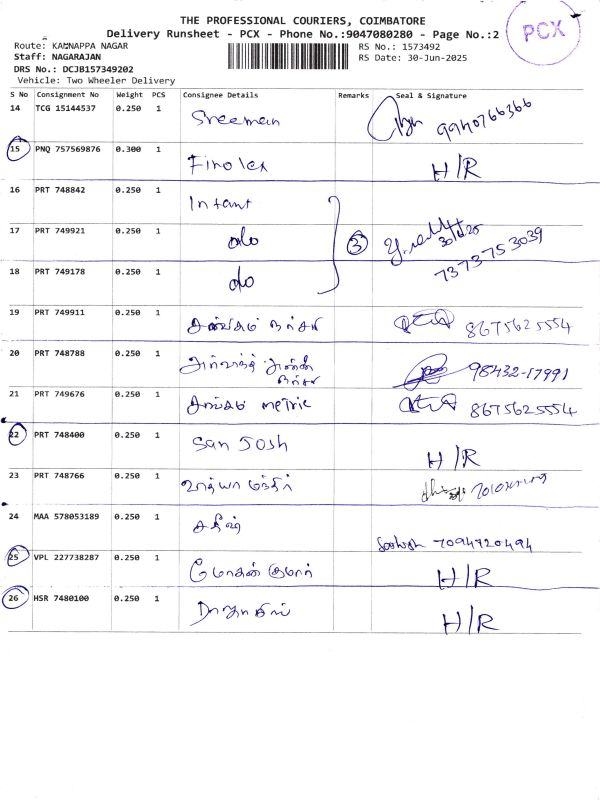 THE PROFESSIONAL COURIERS, COIMBATORE
Delivery Runsheet - PCX - Phone No.:9047080280 - Page No.:2
PCX
Route: KANNAPPA NAGAR
RS No.: 1573492
Staff: NAGARAJAN
RS Date: 30-Jun-2025
DRS No.: DCJB157349202
Vehicle: Two Wheeler Delivery
S No Consignment No Weight PCS Consignee Details Remarks Seal & Signature
14 TCG 15144537 0.250 1 Sreeman 9940766366
15 PNQ 757569876 0.300 1 Finolex H/R
16 PRT 748842 0.250 1 Intant
17 PRT 749921 0.250 1 do 3 30/6/25
7373753039
18 PRT 749178 0.250 1 do
19 PRT 749911 0.250 1 சங்கமம் நர்சரி 8675625554
20 PRT 748788 0.250 1 98432-17991
21 PRT 749676 0.250 1 metric 8675625554
22 PRT 748400 0.250 1 San Josh H/R
23 PRT 748766 0.250 1 வித்யா மந்திர்
24 MAA 578053189 0.250 1 சதீஷ் Sathish 7094720494
25 VPL 227738287 0.250 1 மோகன் குமார் H/R
26 HSR 7480100 0.250 1 H/R